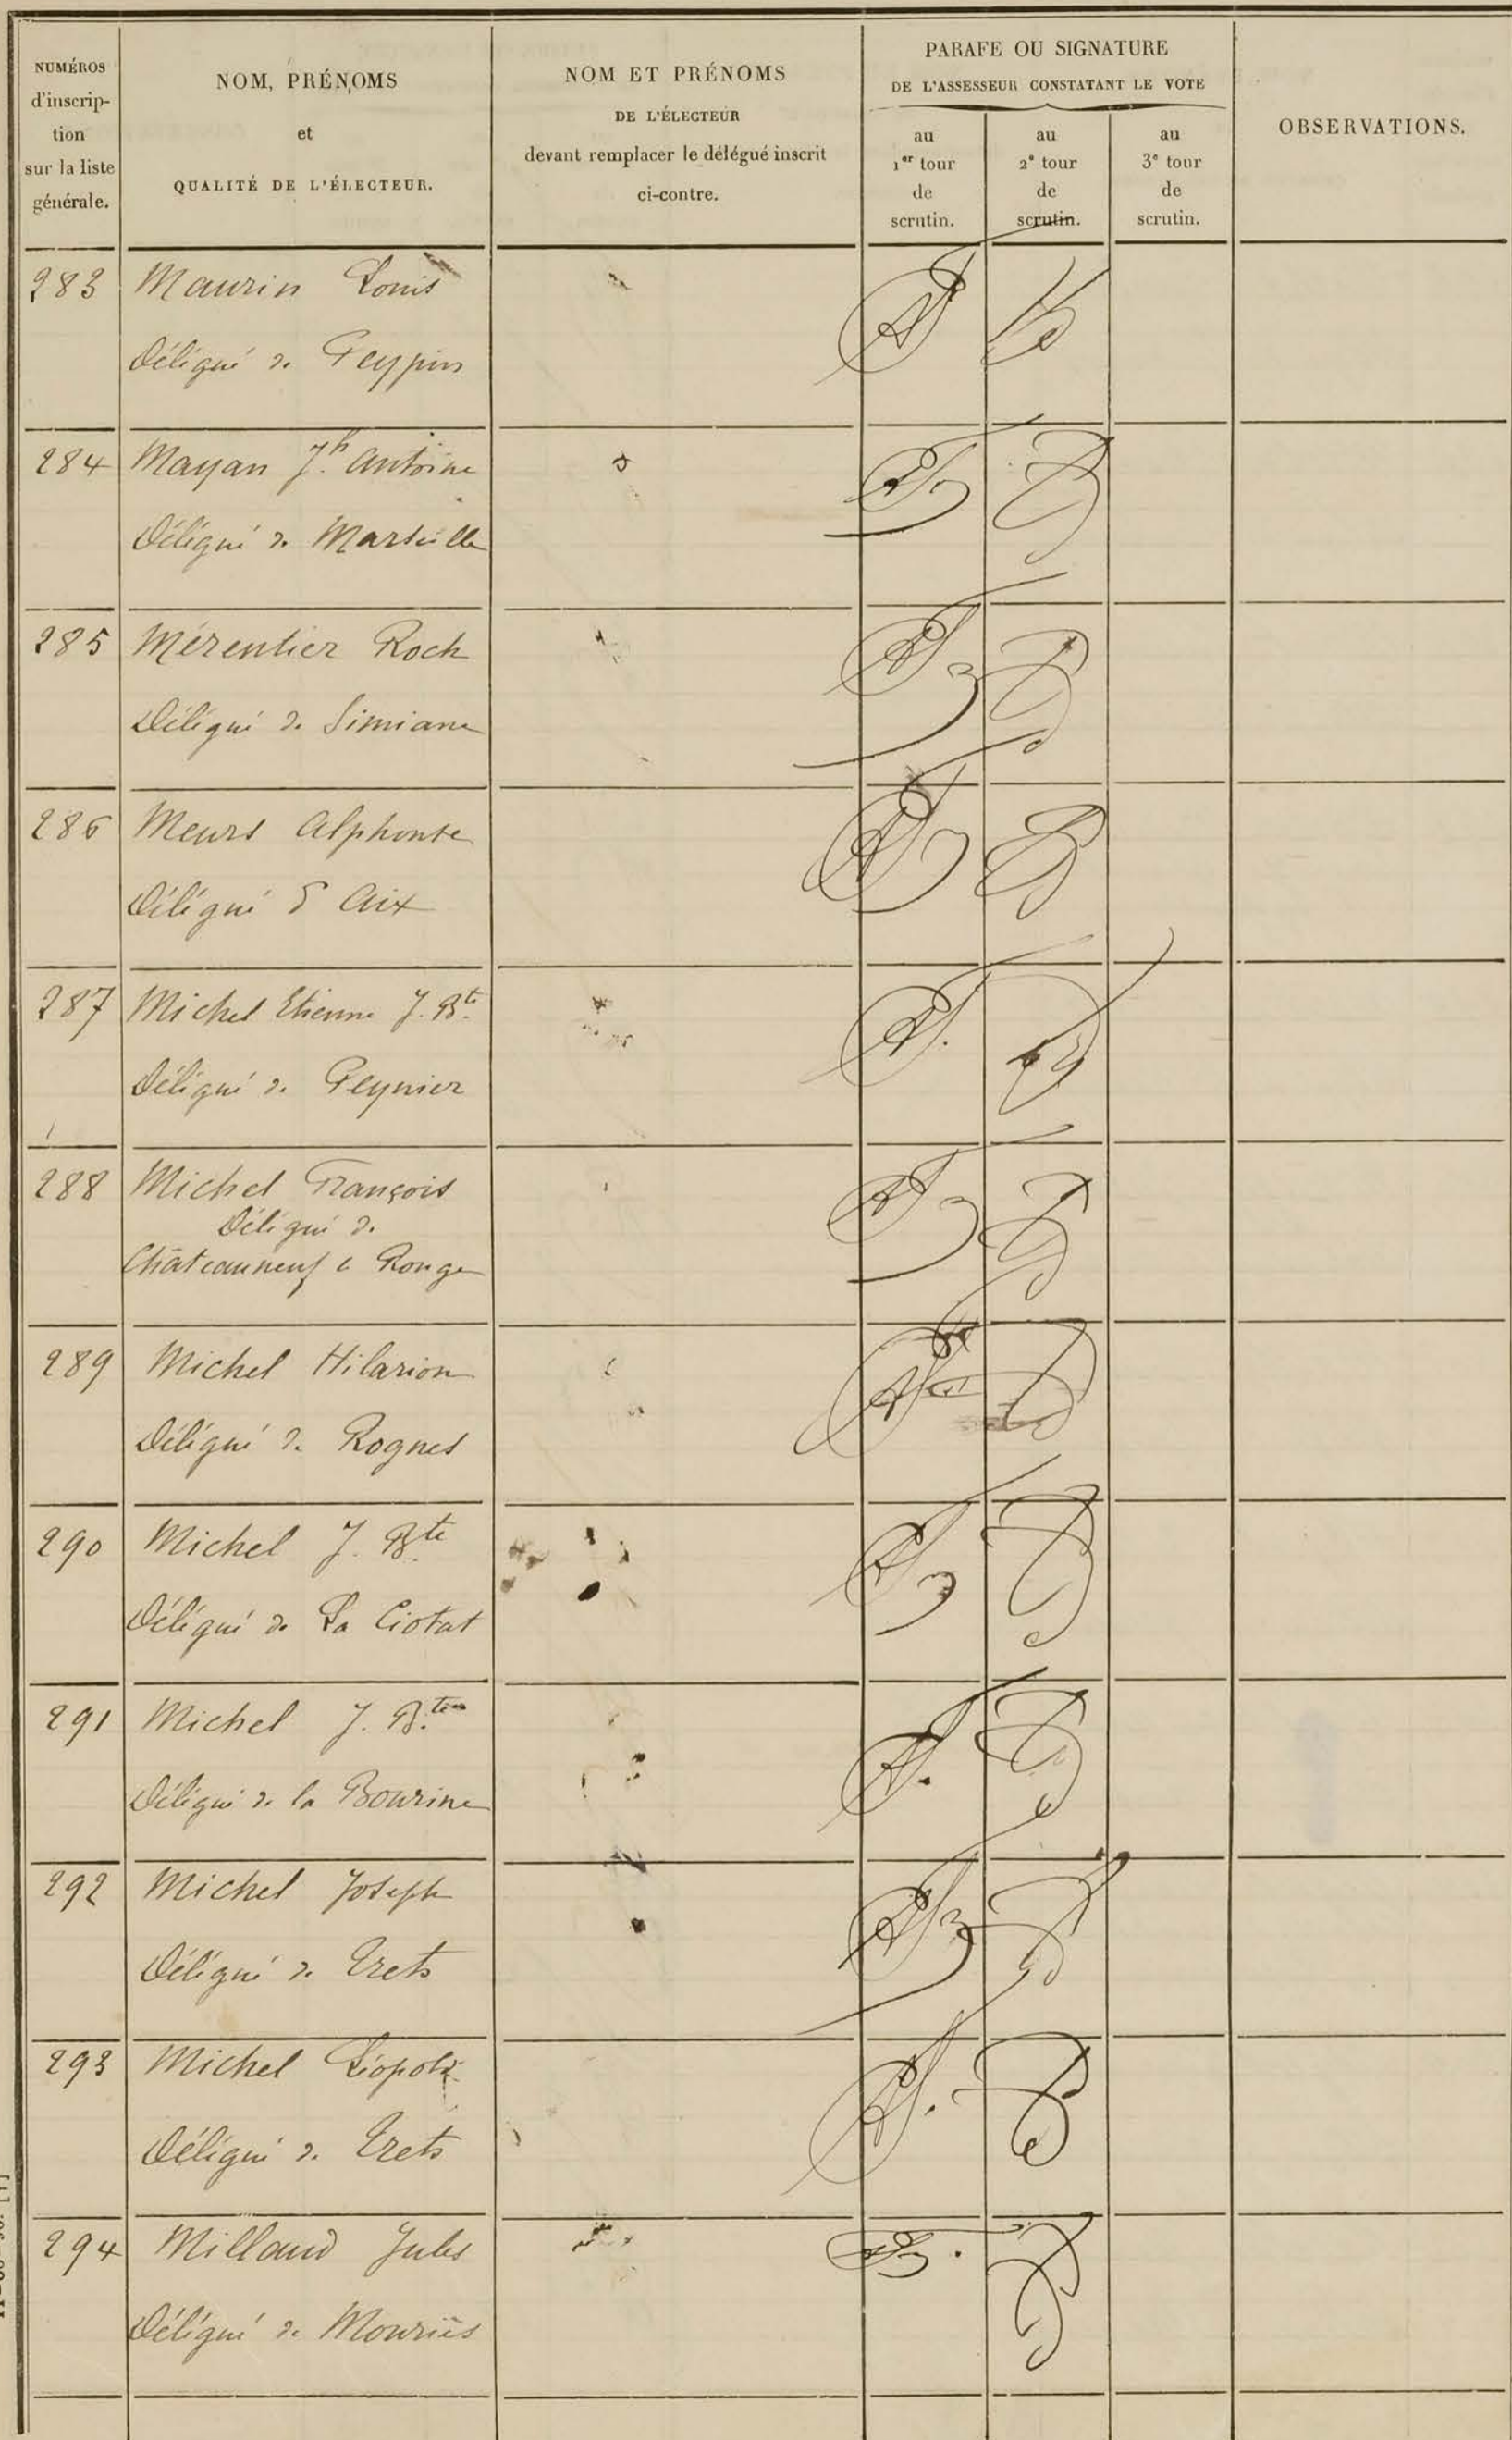 NUMÉROS
d'inscrip-
tion
sur la liste
générale.
NOM, PRÉNOMS
et
QUALITÉ DE L'ÉLECTEUR.
NOM ET PRÉNOMS
DE L'ÉLECTEUR
devant remplacer le délégué inscrit
ci-contre.
PARAFE OU SIGNATURE
DE L'ASSESSEUR CONSTATANT LE VOTE
au
1er tour
de
scrutin.
au
2e tour
de
scrutin.
au
3e tour
de
scrutin.
OBSERVATIONS.
283 Maurin Louis
Délégué de Peypin
284 Mayan Jh. Antoine
Délégué de Marseille
285 Mérentier Roch
Délégué de Simiane
286 Meurs Alphonse
Délégué d'Aix
287 Michel Etienne J. Bte
Délégué de Peynier
288 Michel François
Délégué de
Châteauneuf le Rouge
289 Michel Hilarion
Délégué de Rognes
290 Michel J. Bte
Délégué de La Ciotat
291 Michel J. Bte
Délégué de la Bourine
292 Michel Joseph
Délégué de Trets
293 Michel Léopold
Délégué de Trets
294 Millaud Jules
Délégué de Mouriès